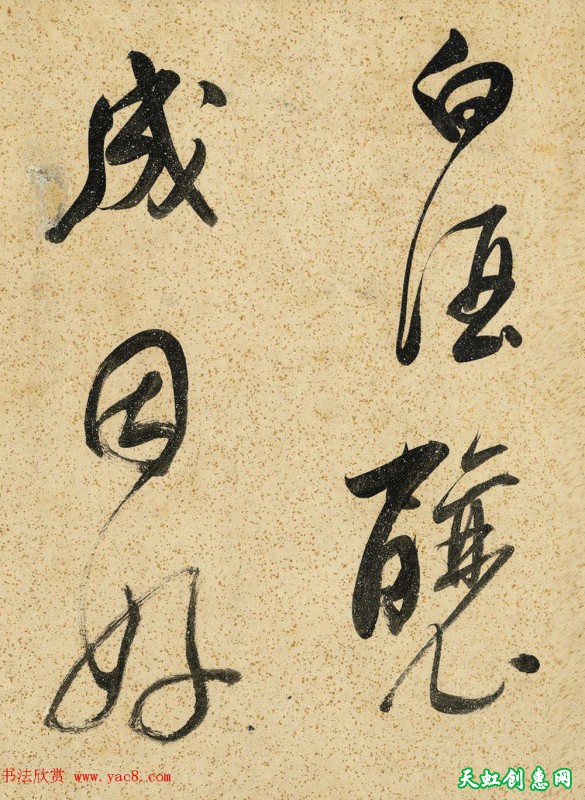 白酒釀
成因好
书法欣赏 www.yac8.com
天虹创惠网